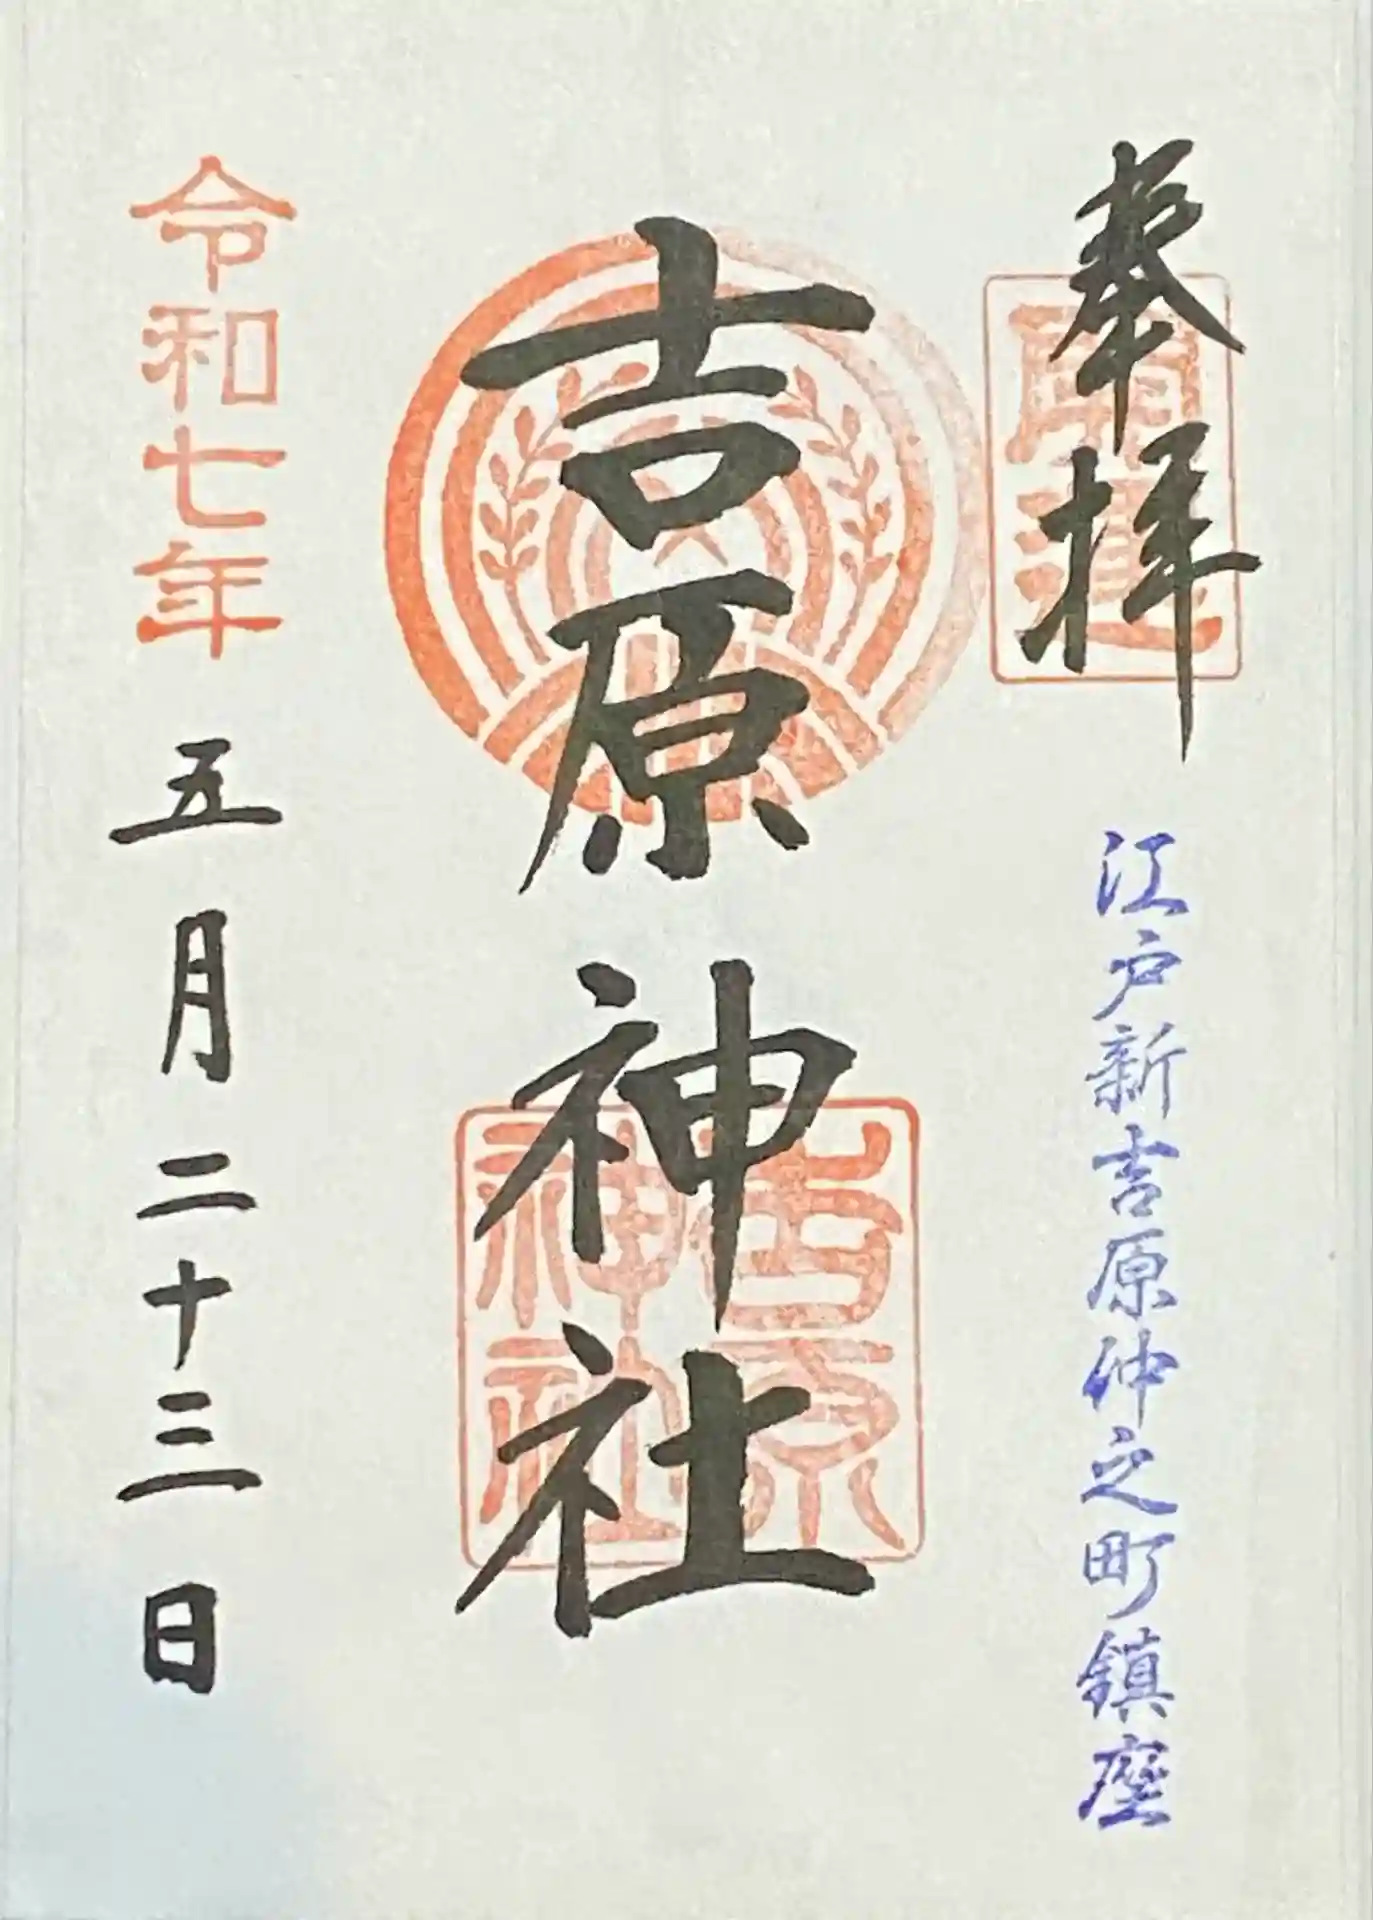 奉拝
江戸新吉原仲之町鎮座
吉原神社
吉原
神社
令和七年
五月二十三日